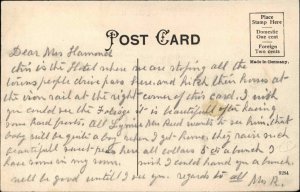 Place
Stamp Here
Domestic
One cent
Foreign
Two cents
Made in Germany.
POST CARD
Dear Mrs Hammond
this is the Hotel where we are stoping all the
towns people drive pass here and hitch their horses at
the iron rail at the right corner of this card. I wish
you could see the Foliage it is beautifull often having
some hard frosts. All want to see him, that
baby will be quite a boy when I get home they raise such
beautifull sweet peas here all collors 5 cts a bunch I
have some in my room. wish I could hand you a bunch.
will be good until I see you. regards to all Mrs